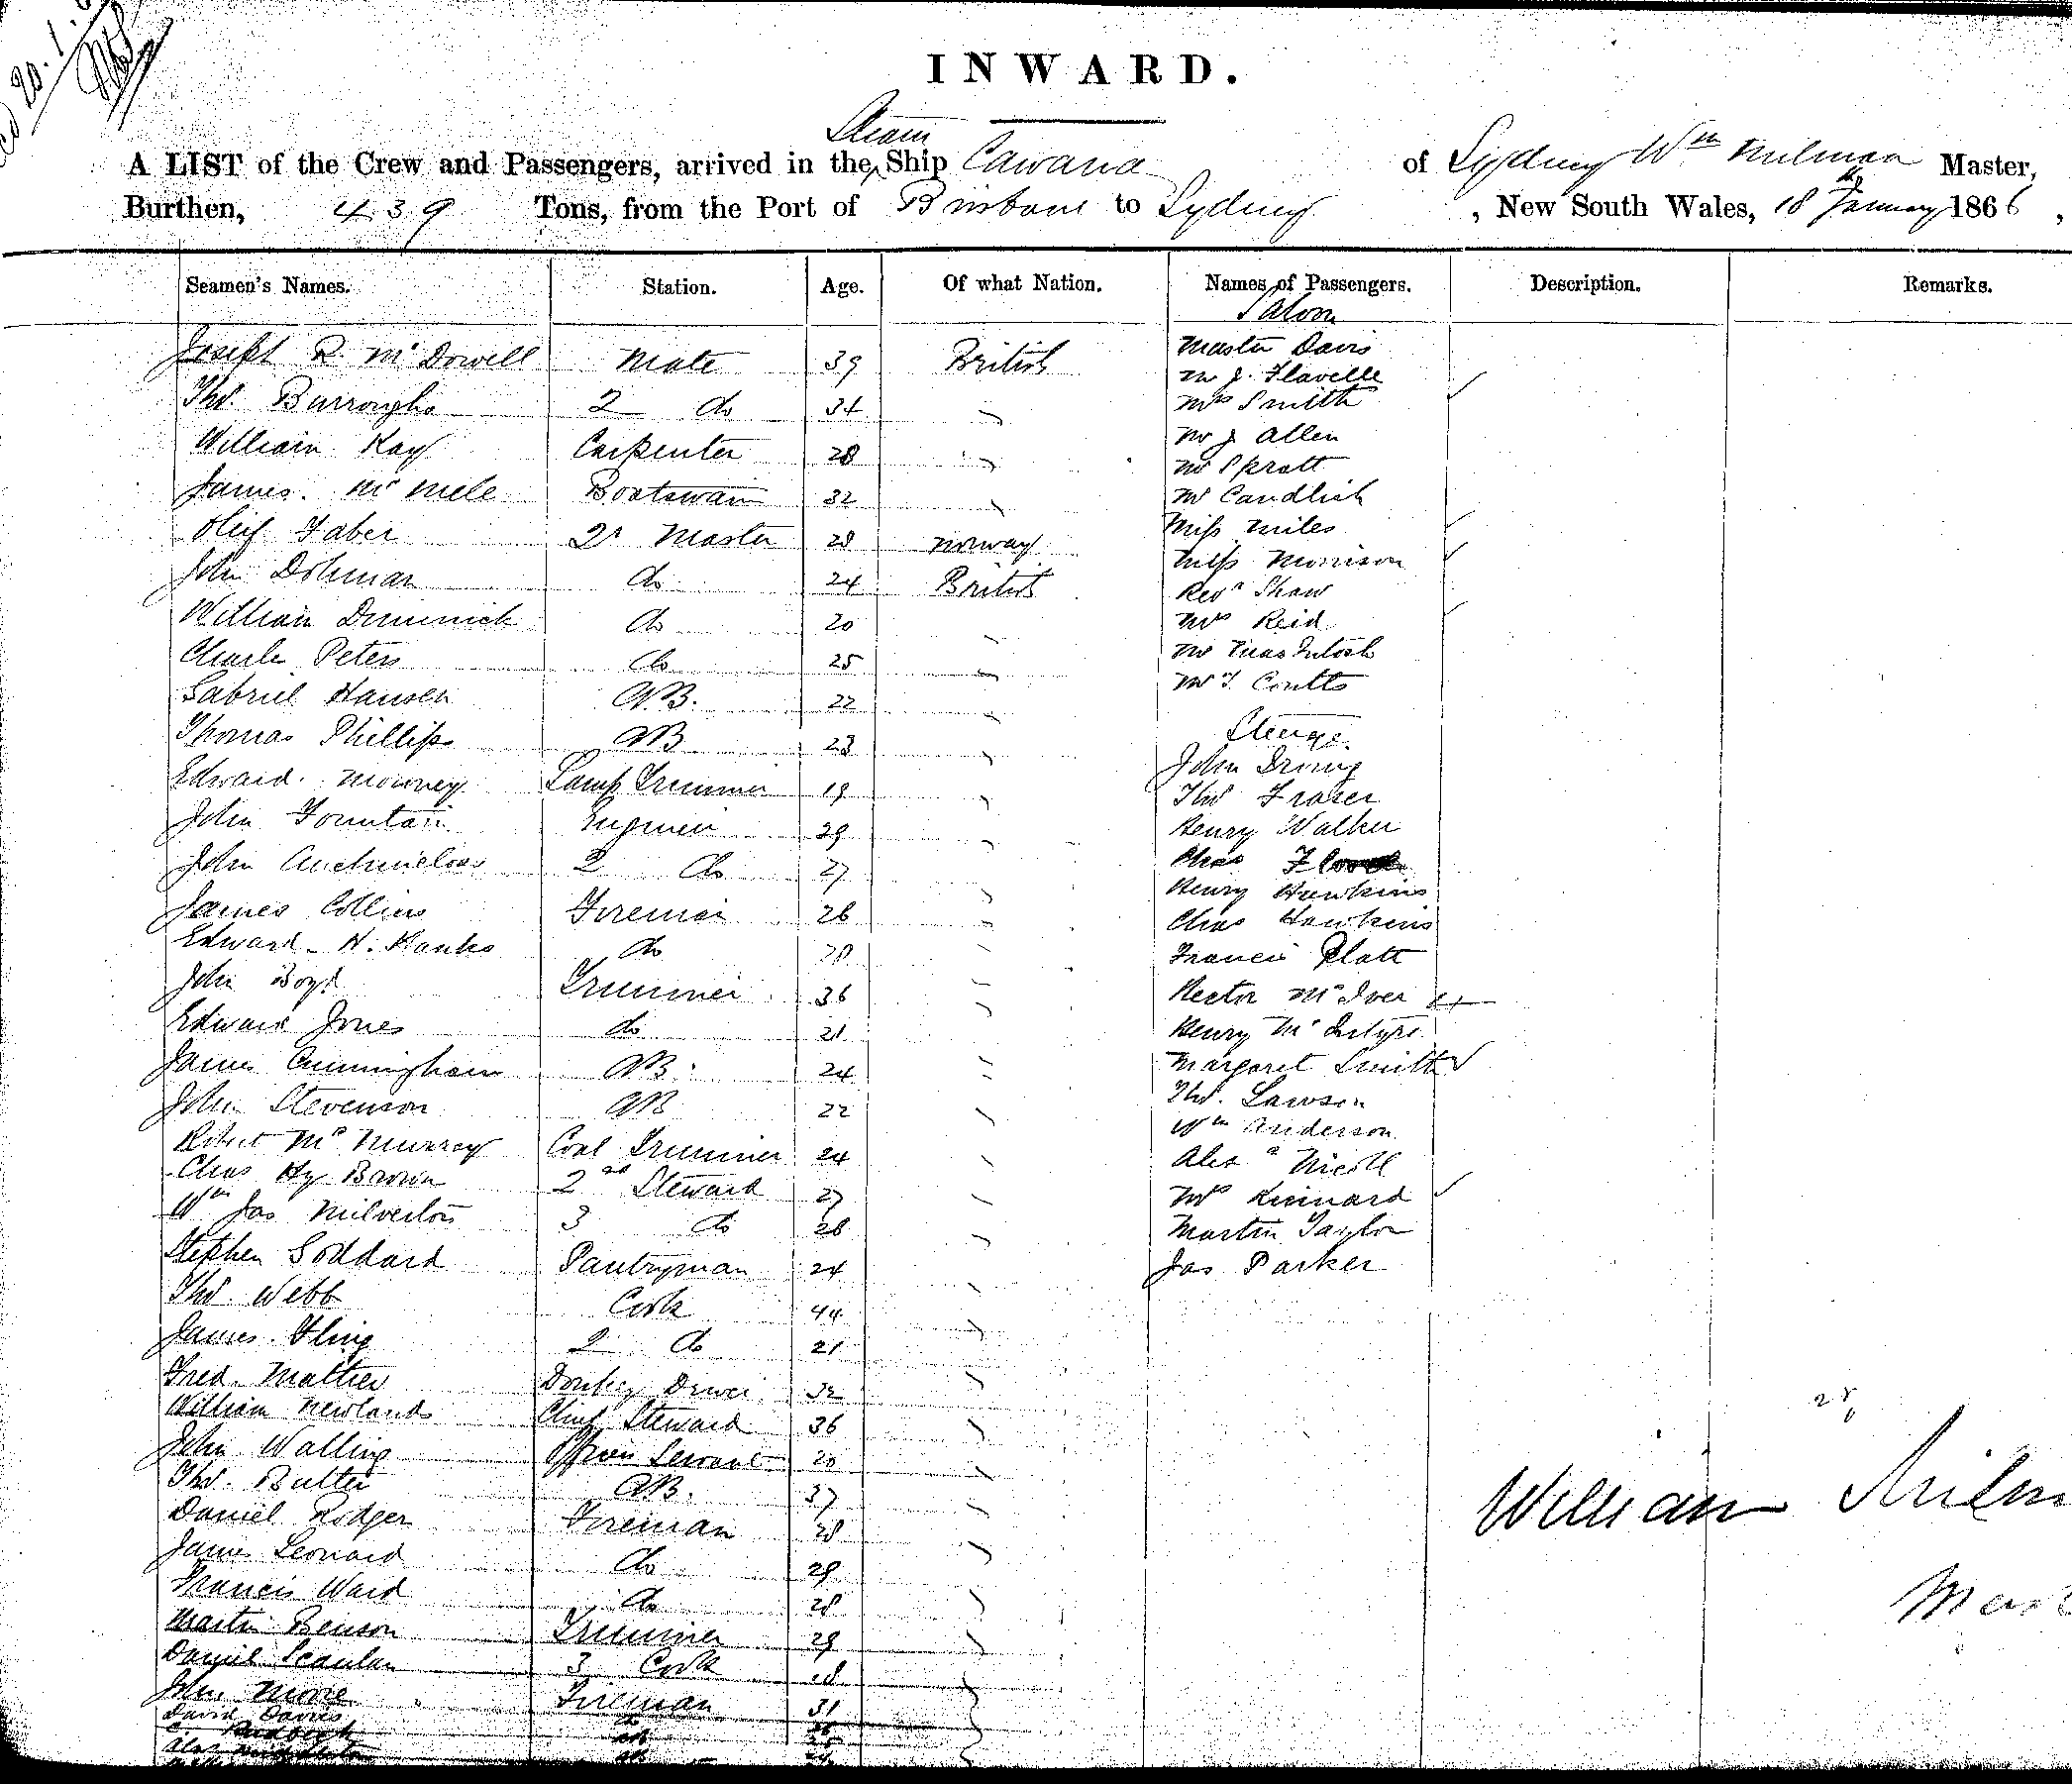 20. 1.
INWARD.
Steam
A LIST of the Crew and Passengers, arrived in the ^ Ship Cawana of Sydney Wm Milman Master,
Burthen, 439 Tons, from the Port of Brisbane to Sydney, New South Wales, 18 January 1866,
Seamen's Names. Station. Age. Of what Nation. Names of Passengers. Description. Remarks.
Saloon
Joseph R. McDowell Mate 39 British Master Davis
Mr J. Flavelle
Thos. Burroughs 2 do 34 " Mrs Smith
William Kay Carpenter 28 " Mr J Allen
Mr Spratt
James Boatswain 32 " Mr Candlish
Olif Faber Qr Master 28 Norway Miss Miles
John Dohman do 24 British Miss Morrison
Revd Shaw
William Dimmick do 20 " Mrs Reid
Charles Peters do 25 " Mr MacIntosh
Gabriel Hansen AB. 22 " Mr T Coutts
Thomas Phillips AB 23 " Steerage.
Edward Lamp Trimmer 19 " John Irving
Thos Frazer
John Fountain Engineer 29 " Henry Walker
John 2 do 27 " Chas
Henry Hawkins
James Collins Fireman 26 " Chas Hawkins
Edward H. Hanks do " Francis Platt
John Boyd Trimmer 36 " Hector McIver
Edward Jones do 21 " Henry McIntyre
James Cunningham AB. 24 " Margaret Smith
John Stevenson AB 22 " Thos. Lawson
Robert McMurray Coal Trimmer 24 " Wm Anderson
Chas Hy Brown 2nd Steward 27 " Alexr Nicoll
Wm Jas Milverton 3 do 28 " Mrs Kinnard
Stephen Goddard Pantryman 24 " Martin Taylor
Jas Parker
Thos. Webb Cook 44 "
James 2 do 21 "
Fred. Mather Donkey Driver 32 "
William Newlands Chief Steward 36 "
John Walling Officers Servant 20 "
Thos. Butler AB. 37 "
Daniel Rodger Fireman 28 "
James Leonard do 29 "
Francis Ward do 28 "
Martin Benson Trimmer 29 "
Daniel Scanlan 3 Cook "
John Moore Fireman 31 "
David Davies
William Milm
Mast